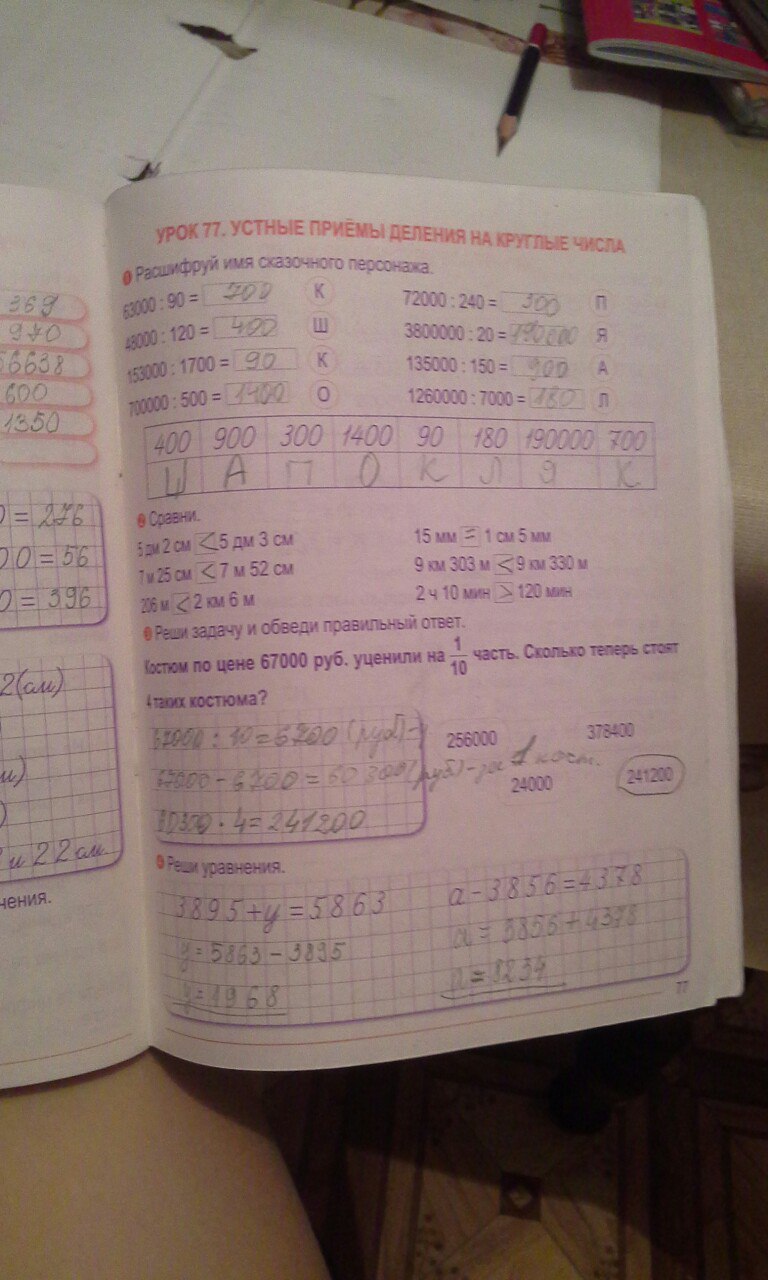 369
970
56638
600
1350
0 = 276
00 = 56
0 = 396
2(см)
м)
)
и 22 см
нения.
УРОК 77. УСТНЫЕ ПРИЁМЫ ДЕЛЕНИЯ НА КРУГЛЫЕ ЧИСЛА
1 Расшифруй имя сказочного персонажа.
63000 : 90 = 700 К 72000 : 240 = 300 П
48000 : 120 = 400 Ш 3800000 : 20 = 190000 Я
153000 : 1700 = 90 К 135000 : 150 = 900 А
700000 : 500 = 1400 О 1260000 : 7000 = 180 Л
400 900 300 1400 90 180 190000 700
Ш А П О К Л Я К
2 Сравни.
5 дм 2 см < 5 дм 3 см 15 мм = 1 см 5 мм
7 м 25 см < 7 м 52 см 9 км 303 м < 9 км 330 м
206 м < 2 км 6 м 2 ч 10 мин > 120 мин
3 Реши задачу и обведи правильный ответ.
Костюм по цене 67000 руб. уценили на 1/10 часть. Сколько теперь стоят
4 таких костюма?
67000 : 10 = 6700 (руб) -
67000 - 6700 = 60300 (руб) - за 1 кост.
60300 · 4 = 241200
256000 378400
24000 241200
4 Реши уравнения.
3895 + y = 5863 a - 3856 = 4378
y = 5863 - 3895 a = 3856 + 4378
y = 1968 a = 8234
77